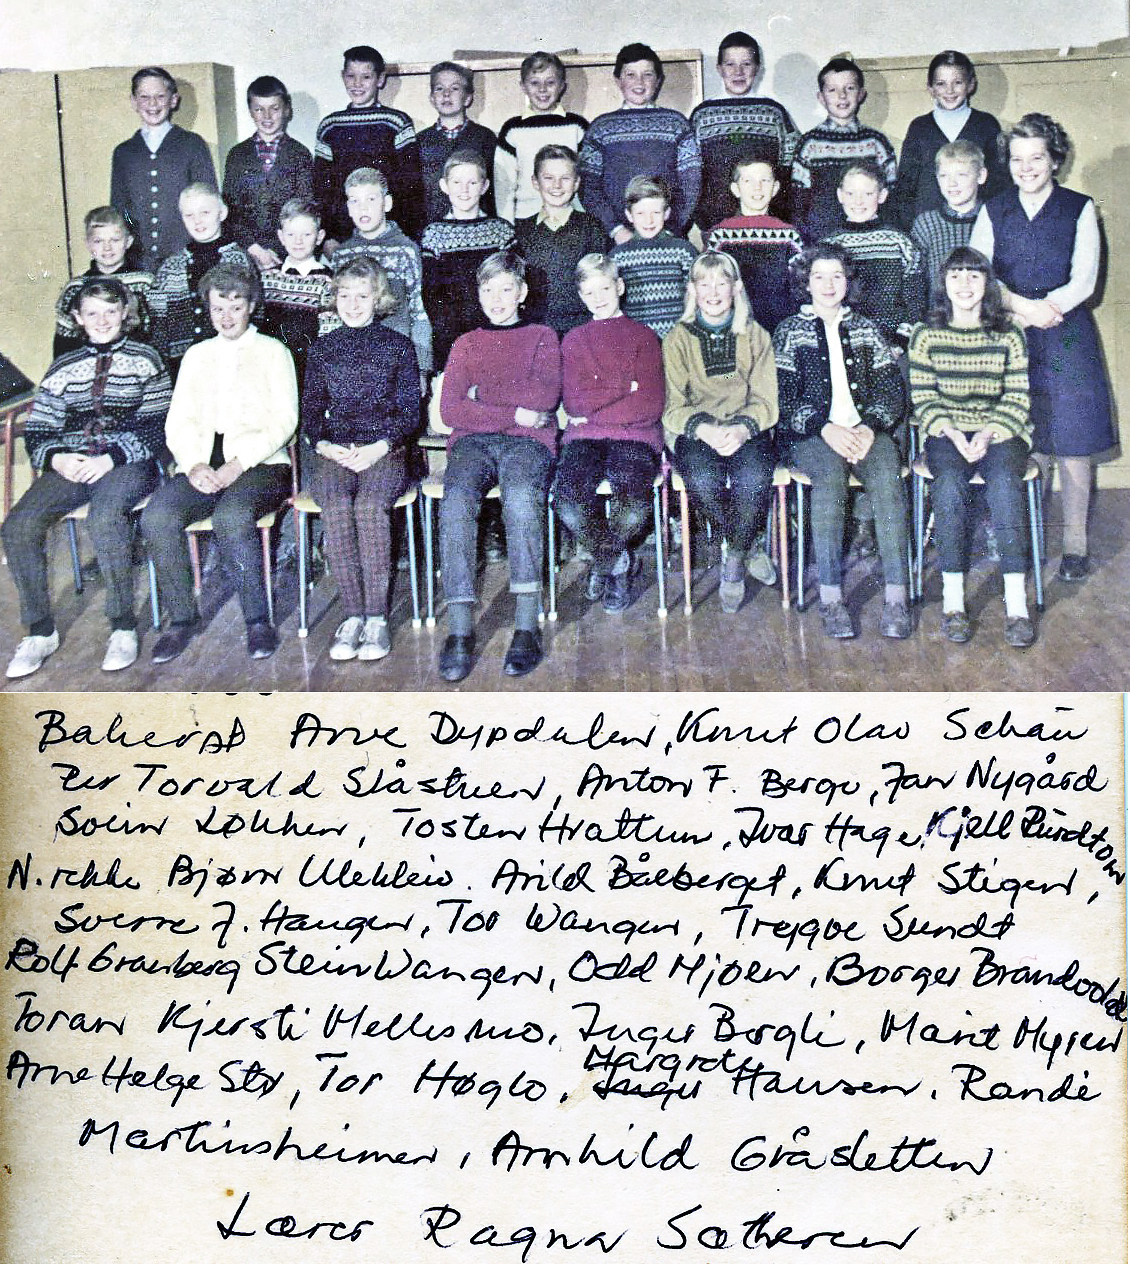 Bakerst Arne Dypdalen, Knut Olav Schau
Per Torvald Slåstuen, Anton F. Berge, Jan Nygård
Svein Løkken, Tosten Hrattum, Ivar Hage, Kjell
N. rekke Bjørn Ulekleiv. Arild Bålberget, Knut Stigen,
Sverre J. Haugen, Tor Wangen, Trygve Sundt
Rolf Granberg Stein Wangen, Odd Mjøen, Borger Brandvold
Foran Kjersti Mellesmo, Inger Bergli, Marit Myren
Margrete
Arne Helge Stø, Tor Høglo, Hansen, Randi
Martinsheimen, Arnhild Gråsletten
Lærer Ragna Sætheren